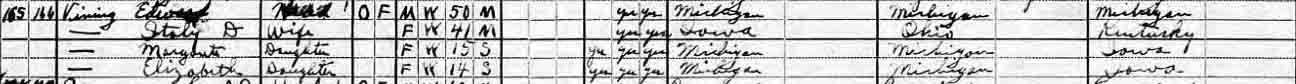 165 166 Vining Edward Head 1 O F M W 50 M yes yes Michigan Michigan Michigan
— Italy D Wife F W 41 M yes yes Iowa Ohio Kentucky
— Margarita Daughter F W 15 S yes yes yes Michigan Michigan Iowa
— Elizabeth Daughter F W 14 S yes yes yes Michigan Michigan Iowa